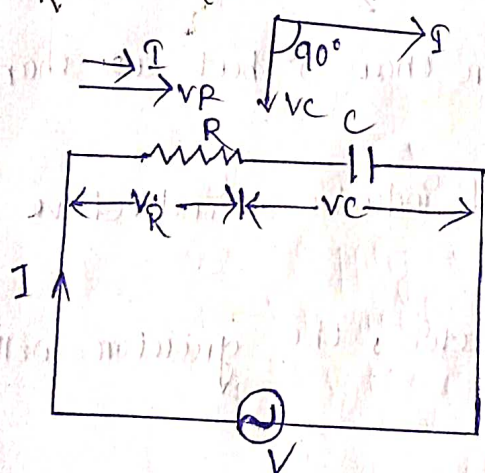 I
VR
90°
I
VC
R
C
VR
VC
I
V